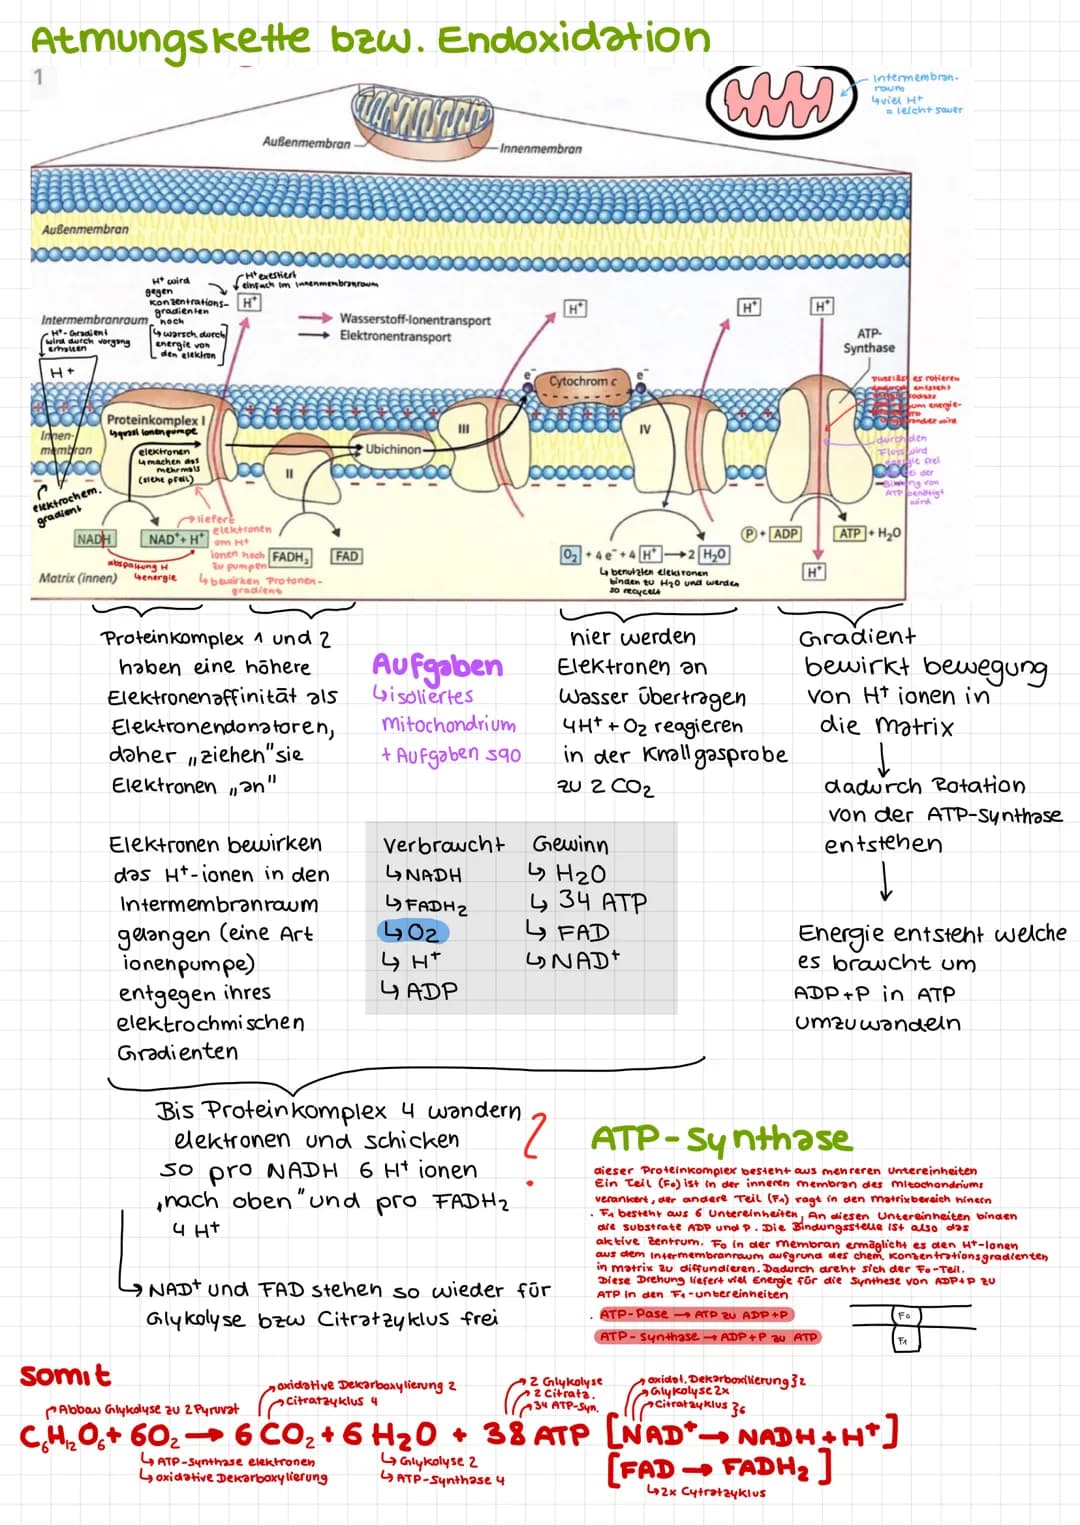 Atmungskette bzw. Endoxidation
1
Intermembran-
raum
↳viel H+
= leicht sauer
Außenmembran
Innenmembran
Außenmembran
H+ wird
gegen
Konzentrations-
gradienten
hoch
↳warsch durch
energie von
den elektron
H+ exestiert
einfach im Innenmembranraum
H+
Wasserstoff-Ionentransport
Elektronentransport
H+
H+
H+
Intermembranraum
H+-Gradient
wird durch vorgang
erhalten
H+
ATP-
Synthase
Cytochrom c
e-
e-
Proteinkomplex I
↳quasi Ionenpumpe
elektronen
↳machen das
mehrmals
(siehe pfeil)
Innen-
membran
II
Ubichinon
III
IV
es rotieren
entsteht
durch den
Fluss wird
Energie frei
bei der
Bindung von
ATP benötigt
wird
elektrochem.
gradient
NADH
NAD+ + H+
abspaltung H
↳energie
liefert
elektronen
um H+
Ionen hoch
zu pumpen
↳bewirken Protonen-
gradient
FADH2
FAD
O2 + 4 e- + 4 H+ → 2 H2O
↳benutzten elektronen
binden zu H2O und werden
so recycelt
P + ADP
ATP + H2O
H+
Matrix (innen)
Proteinkomplex 1 und 2
haben eine höhere
Elektronenaffinität als
Elektronendonatoren,
daher „ziehen" sie
Elektronen „an"
Aufgaben
↳isoliertes
mitochondrium
+ Aufgaben s90
hier werden
Elektronen an
Wasser übertragen
4H+ + O2 reagieren
in der Knallgasprobe
zu 2 CO2
Gradient
bewirkt bewegung
von H+ ionen in
die matrix
↓
dadurch Rotation
von der ATP-Synthase
entstehen
↓
Energie entsteht welche
es braucht um
ADP+P in ATP
umzuwandeln
Elektronen bewirken
das H+-ionen in den
Intermembranraum
gelangen (eine Art
ionenpumpe)
entgegen ihres
elektrochmischen
Gradienten
verbraucht
↳NADH
↳FADH2
↳O2
↳H+
↳ADP
Gewinn
↳H2O
↳34 ATP
↳FAD
↳NAD+
Bis Proteinkomplex 4 wandern
elektronen und schicken
so pro NADH 6 H+ ionen
„nach oben" und pro FADH2
4 H+
?
↳NAD+ und FAD stehen so wieder für
Glykolyse bzw Citratzyklus frei
ATP-Synthase
dieser Proteinkomplex besteht aus mehreren Untereinheiten
Ein Teil (F0) ist in der inneren membran des mitochondriums
verankert, der andere Teil (F1) ragt in den matrixbereich hinein
· F1 besteht aus 6 Untereinheiten, An diesen Untereinheiten binden
die substrate ADP und P. Die Bindungsstelle ist also das
aktive Zentrum. F0 in der membran ermöglicht es den H+-Ionen
aus dem Intermembranraum aufgrund des chem. Konzentrationsgradienten
in matrix zu diffundieren. Dadurch dreht sich der F0-Teil.
Diese Drehung liefert viel Energie für die Synthese von ADP+P zu
ATP in den F1-untereinheiten
· ATP-Pase → ATP zu ADP+P
ATP-Synthase → ADP+P zu ATP
F0
F1
somit
Abbau Glykolyse zu 2 Pyruvat
oxidative Dekarboxylierung 2
Citratzyklus 4
2 Glykolyse
2 Citratz.
34 ATP-Syn.
oxidat. Dekarboxilierung 2
Glykolyse 2x
Citratzyklus 6
C6H12O6 + 6O2 → 6 CO2 + 6 H2O + 38 ATP [NAD+ → NADH + H+]
[FAD → FADH2]
↳ATP-Synthase elektronen
↳oxidative Dekarboxylierung
↳Glykolyse 2
↳ATP-Synthase 4
↳2x Cytratzyklus